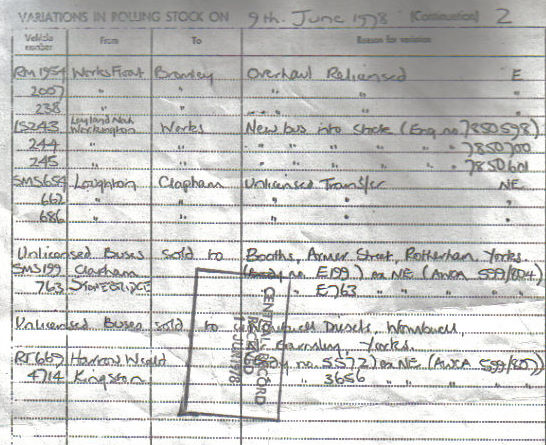 VARIATIONS IN ROLLING STOCK ON 9th. June 1978 (Continuation) 2
Vehicle number From To Reason for variation
RM1954 Works Float Bromley Overhaul Relicensed E
2007 " " " " "
238 " " " " "
LS243 Leyland Nat. Workington Works New bus into stock (Eng no 7850598)
244 " " " " " " " " 7850700
245 " " " " " " " " 7850601
SMS654 Loughton Clapham Unlicensed Transfer NE
662 " " " " "
686 " " " " "
Unlicensed Buses sold to Booths, Armer Street, Rotherham Yorks.
SMS199 Clapham (Body no. E199) ex NE (AWXA 599/804)
763 STONEBRIDGE " E763 " " " "
Unlicensed Buses sold to Wombwell Diesels, Wombwell,
Nr Barnsley, Yorks.
RT667 Harrow Weald (Body no. 5572) ex NE (AWXA 599/807)
4714 Kingston " 3656 " " " "
CENT RECORD
JUN 1978